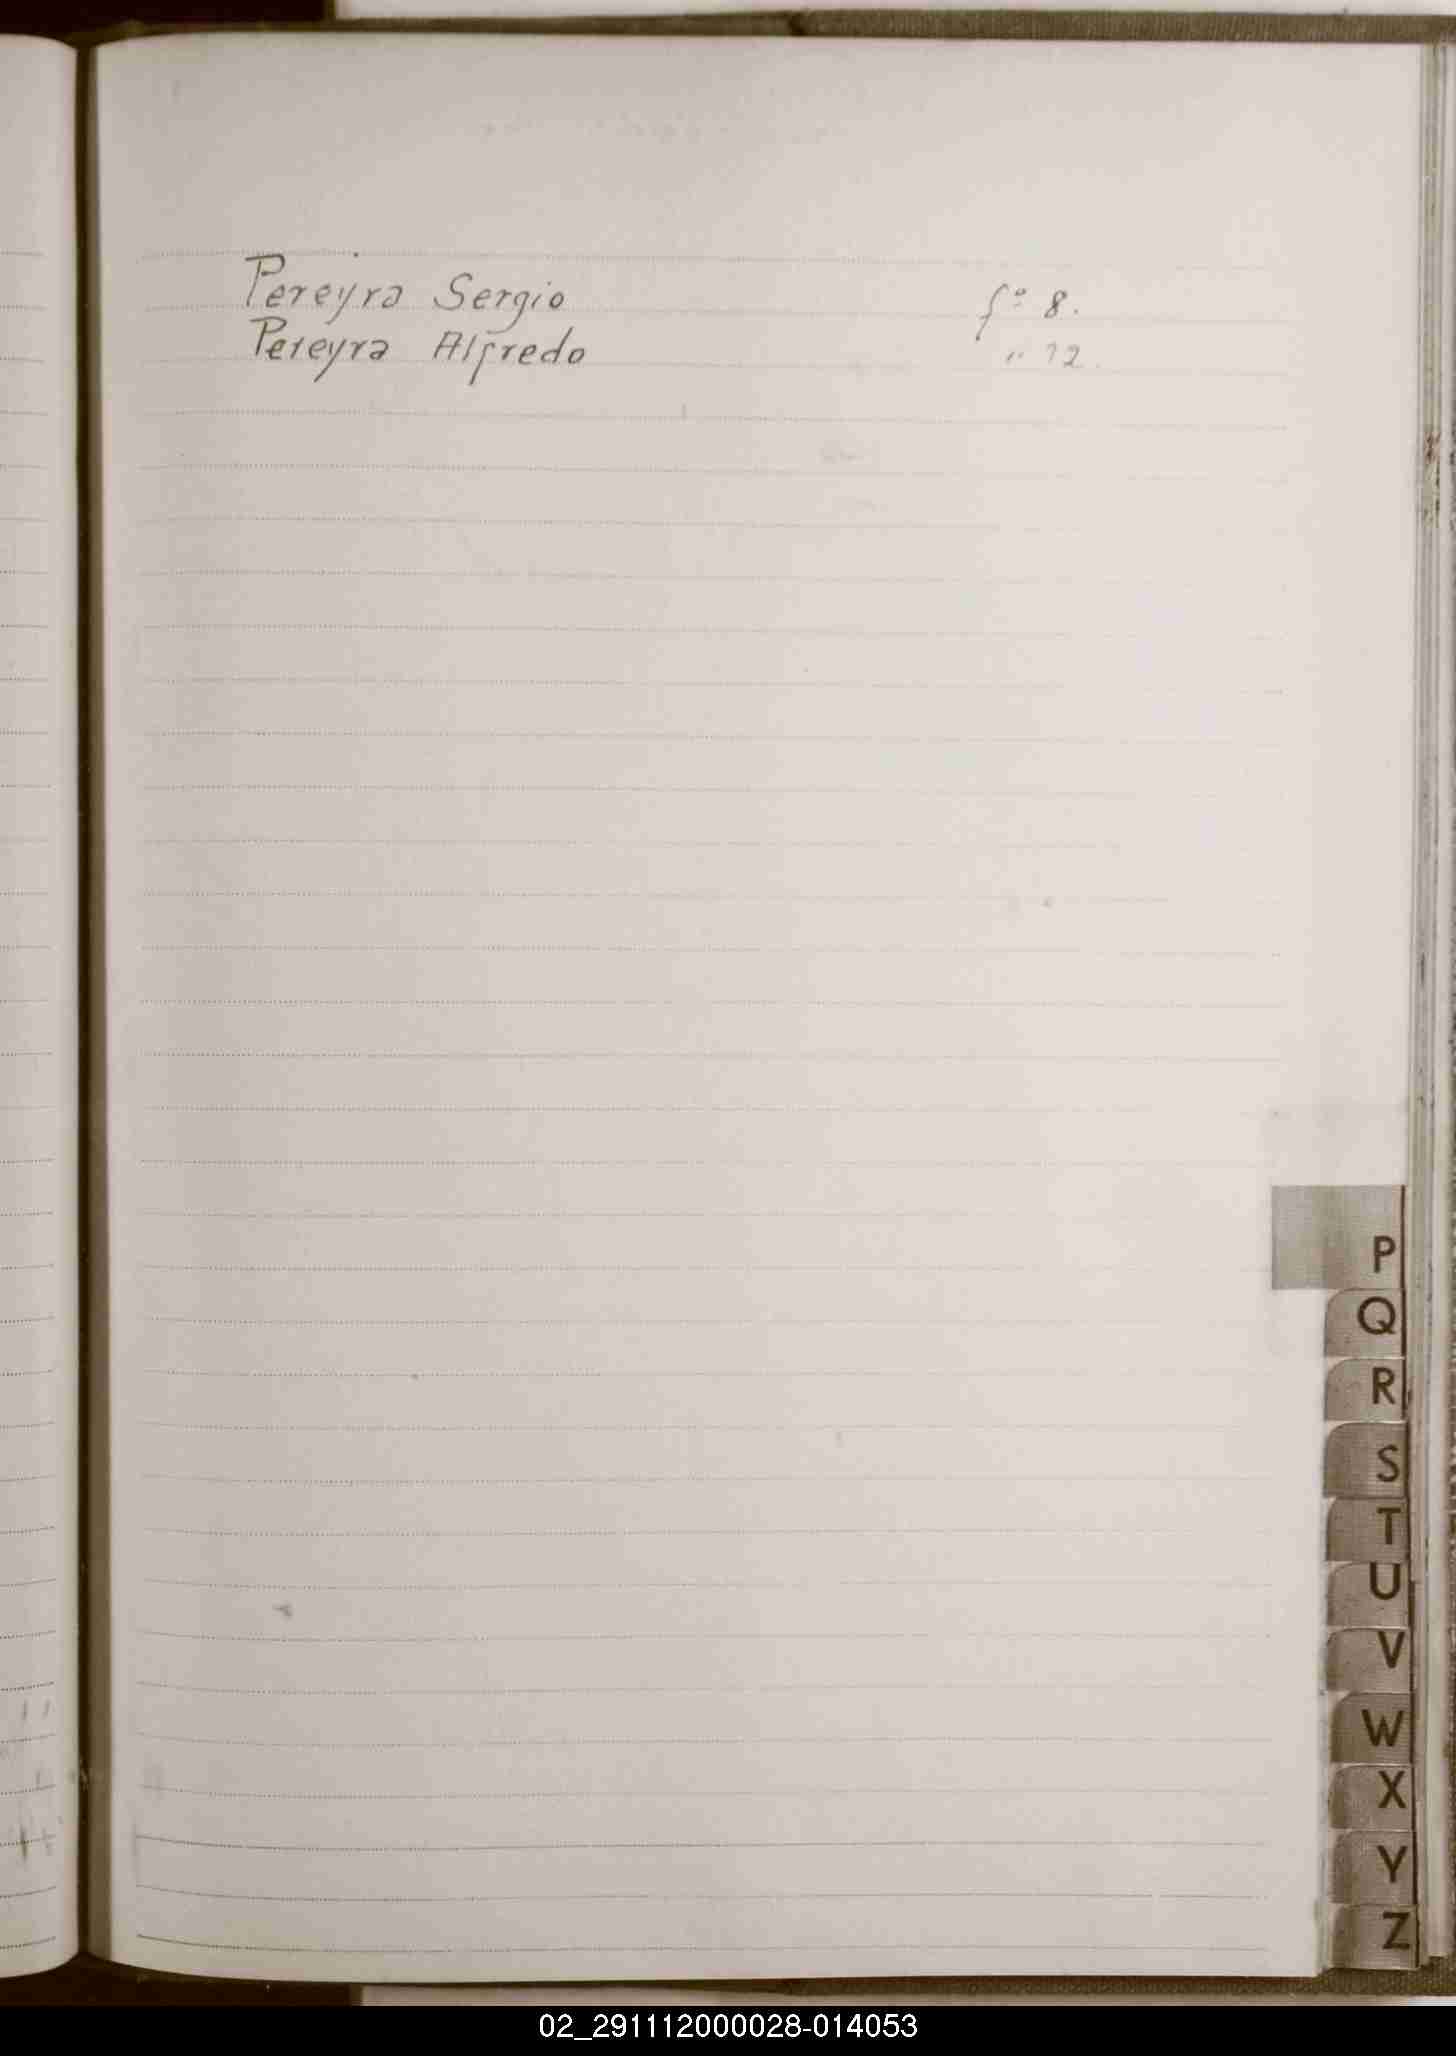 Pereyra Sergio fº 8.
Pereyra Alfredo " 12.
P
Q
R
S
T
U
V
W
X
Y
Z
02_291112000028-014053